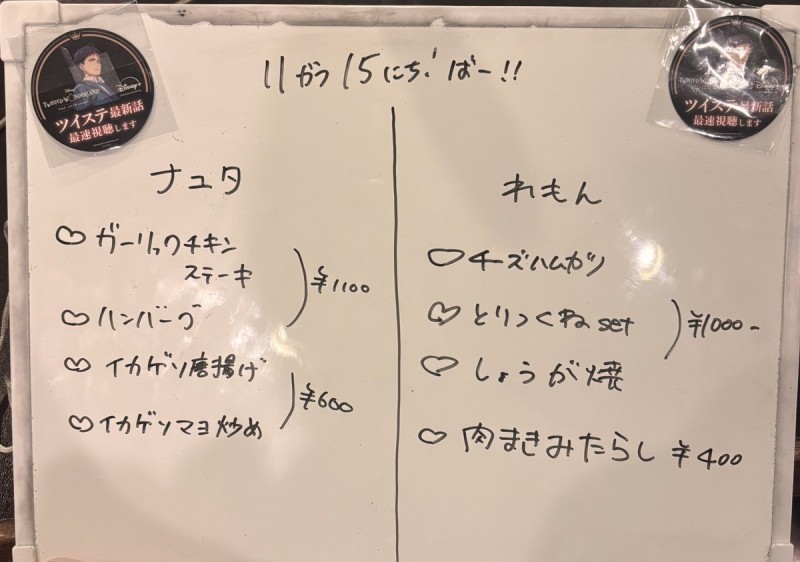 11がつ15にち!ばー!!
Disney
TWISTED WONDERLAND
THE ANIMATION
Disney+
ツイステ最新話
最速視聴します
TWISTED WONDERLAND
Disney+
ツイステ最新話
最速視聴します
ナユタ
♡ガーリックチキン
ステーキ
♡ハンバーグ
¥1100
♡イカゲソ唐揚げ
♡イカゲソマヨ炒め
¥600
れもん
♡チーズハムカツ
♡とりつくねset
♡しょうが焼
¥1000-
♡肉まきみたらし ¥400